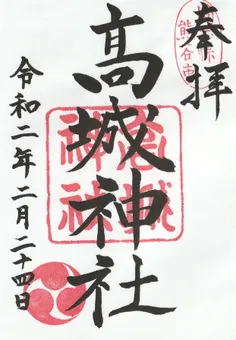 奉拝
高城神社
令和二年二月二十四日